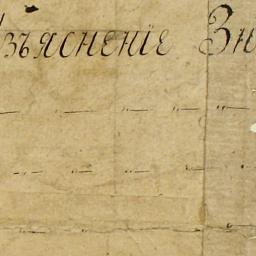 Изъясненїе Зн